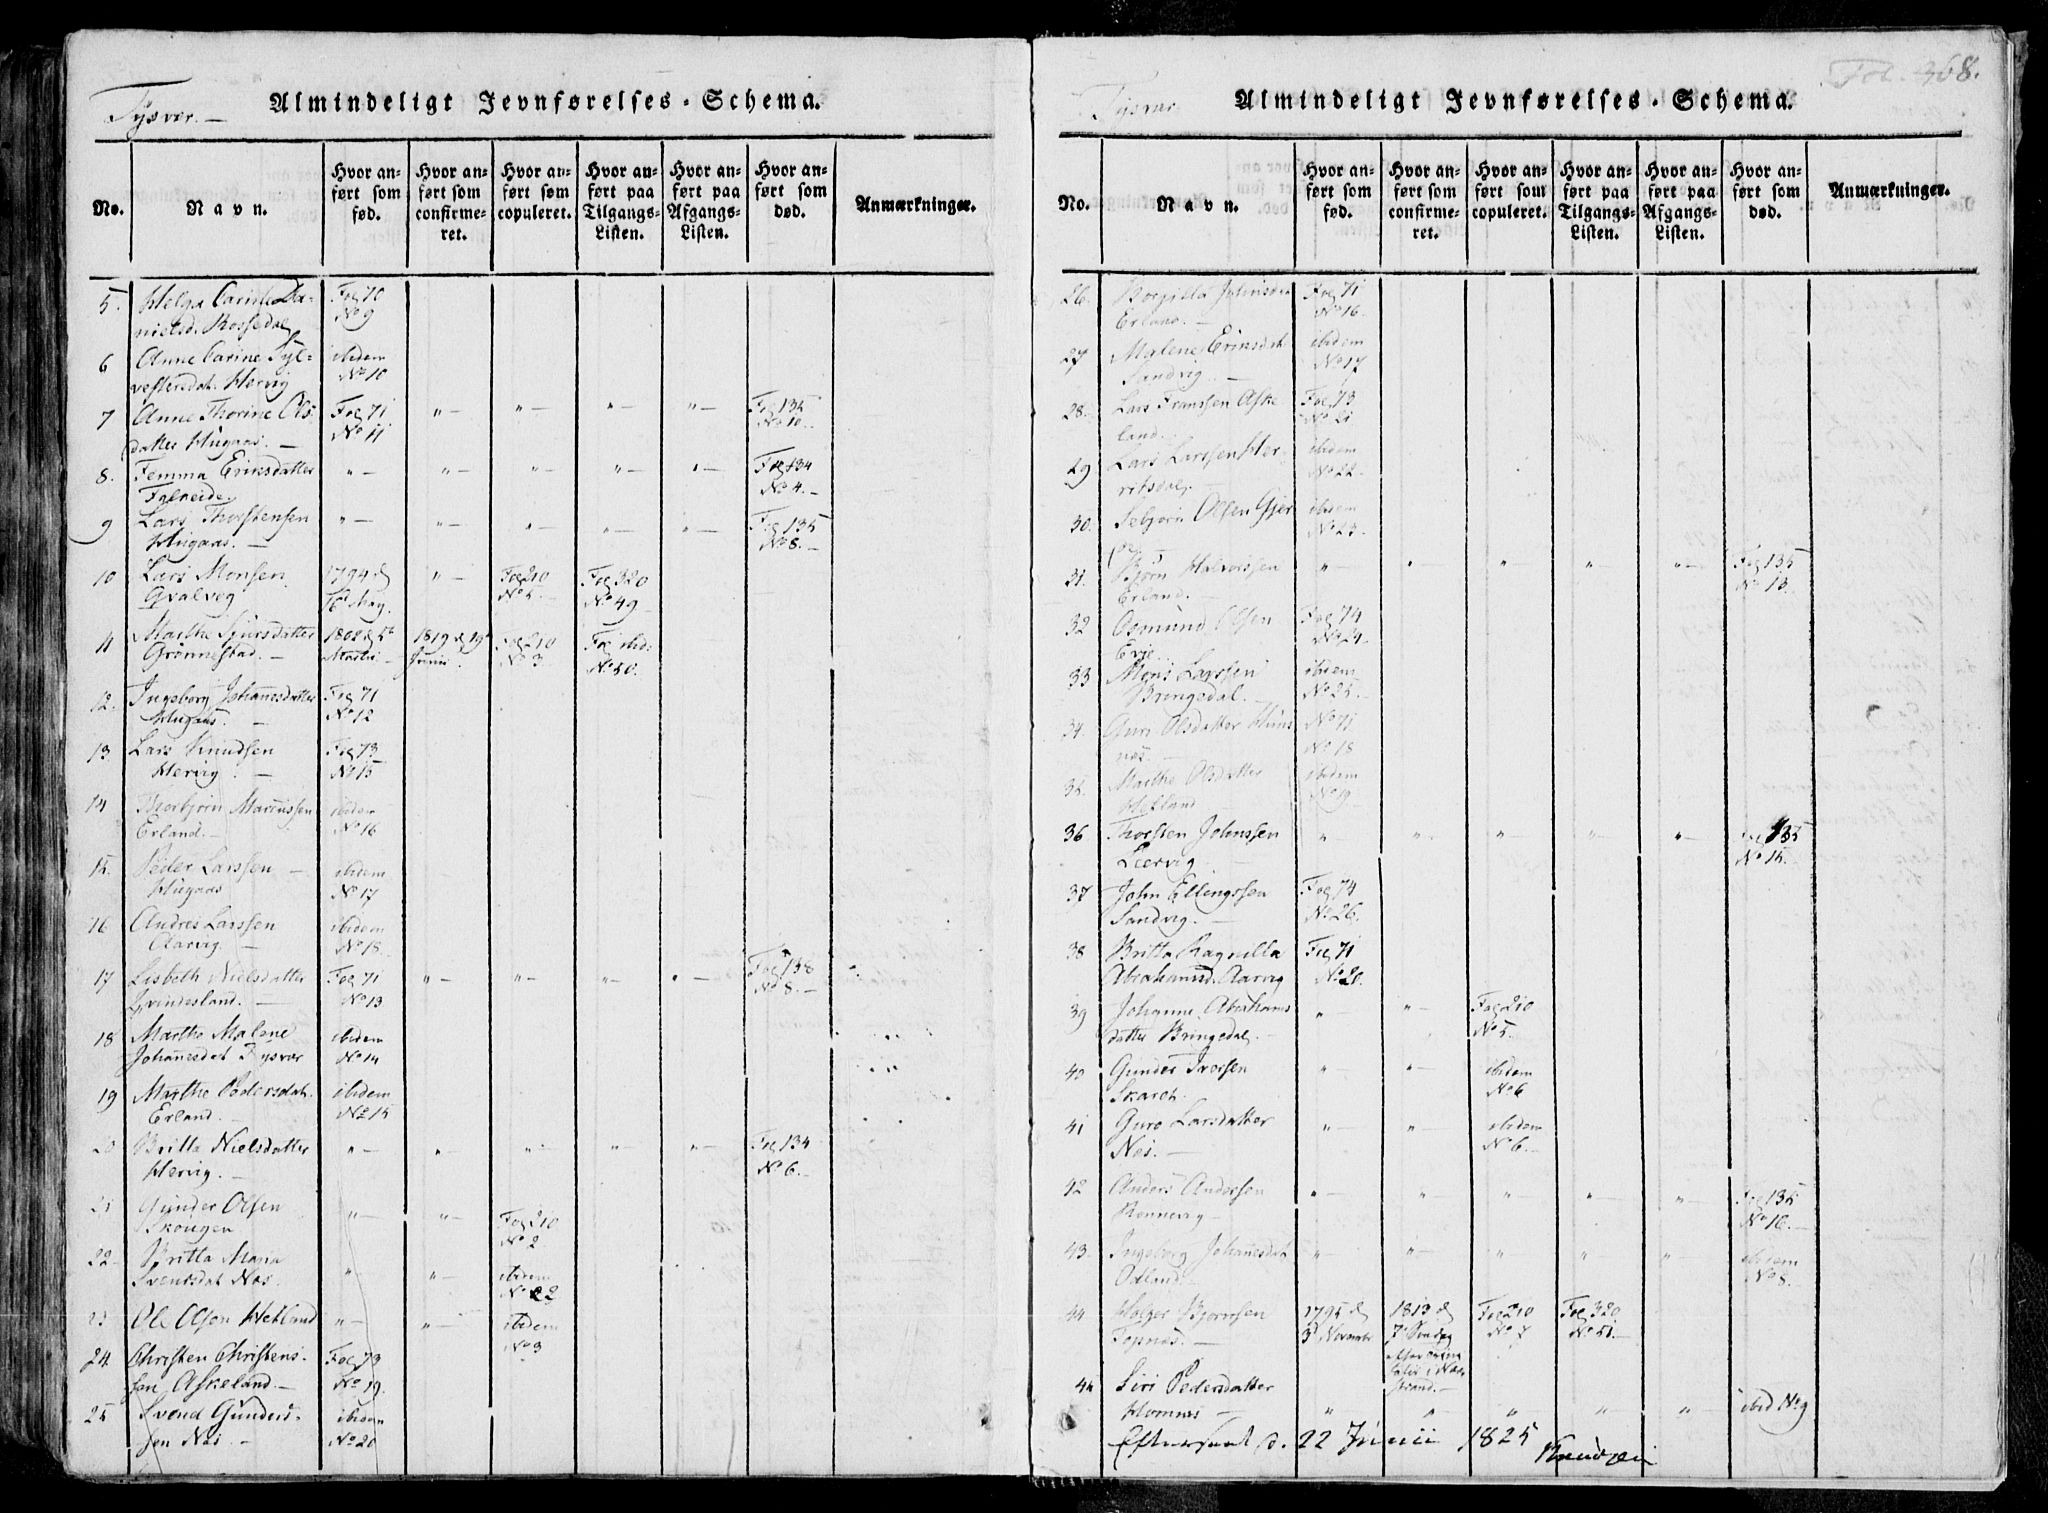 Tysver.
Almindeligt Jevnførelses-Schema.
No.
Navn.
Hvor anført som fød.
Hvor anført som confirmeret.
Hvor anført som copuleret.
Hvor anført paa Tilgangs-Listen.
Hvor anført paa Afgangs-Listen.
Hvor anført som død.
Anmærkninger.
5. Helga Carine Da- Fol 70
nielsd. Rossedal No 9
6 Anne Carine Syl- ibidem
vestersdat. Hervig No 10
7 Anne Thorine Ols- Fol 71 „— „— „— „— Fol 135
datter Hügaas. — No 11 No 10.
8. Femma Eriksdatter „— „— „— „— „— Fol 134
Falkeide. No 4.—
9 Lars Thorstensen „— „— „— „— „— Fol 135
Hügaas. — No 8.—
10 Lars Monsen 1794 d „— Fol 210 Fol 320
Qvalevog 16 May. No 1. No 49
11 Marthe Sjursdatter 1802 d 5t 1819 d 19 Fol 210 Fol ibid:
Grønnestad. — Martii Junii. No 3 No 50.
12. Ingeborg Johannesdatter Fol 71
Hügaas. — No 12
13 Lars Knudsen Fol 73
Hervig. — No 15
14 Thorbjørn Marcussen ibidem
Erland.— No 16
15. Peder Larssen — ibidem
Hügaas No 17
16 Andres Larssen ibidem
Aarvig. — No 18.
17 Lisbeth Nielsdatter Fol 71 „— „— „— „— Fol 138
Qvindesland. — No 13 No 8.—
18 Marthe Malene ibidem
Johannesdat Tysver No 14
19 Marthe Pedersdat. ibidem
Erland. — No 15
20 Britta Nielsdatter „— „— „— „— „— Fol 134
Hervig. — No 6.—
21 Gunder Olsen „— „— Fol 210
Skougen No 2
22. Britta Maria „ „— ibidem
Svendsdat Nes. No 2
23 Ole Olsen Hetland „— „— ibidem
No 3
24. Christen Christens- Fol 73
sen Askeland.— No 19.
25 Svend Gunders- ibidem
sen Nes. — No 20
Fol. 368.
Tysver
Almindeligt Jevnførelses-Schema.
No.
Navn.
Hvor anført som fød.
Hvor anført som confirmeret.
Hvor anført som copuleret.
Hvor anført paa Tilgangs-Listen.
Hvor anført paa Afgangs-Listen.
Hvor anført som død.
Anmærkninger.
26. Borgilla Johnsdat Fol 71
Erland. — No 16.
27 Malene Eriksdat ibidem
Sandvig. — No 17
28. Lars Franssen Aske Fol 73
land. No 21
29 Lars Larssen Her- ibidem
ritsdal. No 22.
30. Sebjørn Olsen Gjer ibidem
No 23.
31. Bjørn Halvorssen „— „ „ „— „— Fol 135
Erland. — No 13.
32 Osmund Olsen Fol 74
Evje No 24.
33 Mons Larssen ibidem
Bringedal. — No 25.
34. Guri Olsdatter Hüns No 71
nes. — No 18
35. Marthe Olsdatter ibidem
Hetland No 19.
36 Thorsten Johnssen „ „— „ „— „— Fol 135
Leervig No 15.
37 John Ellingssen Fol 74
Sandvig. — No 26.
38 Britta Ragnilla Fol 71
Abrahamsd. Aarvig No 20.
39 Johanne Abrahams „— „— Fol 210
datter Bringedal. — No 5.
40 Gunder Iversen „— „— ibidem
Skaret. No 6
41 Guro Larsdatter „— „— ibidem
Nes. — No 6.
42 Anders Andersen „— „— „— „— „— Fol 135
Rønnevig— No 16.
43. Ingeborg Johannesdat „— „— „ „— „— ibidem
Odland. No 8.
44 Holger Bjørnsen 1795 d 1813 d Fol 210 Fol 320
Topnes. — 3d November 7de Søndag No 7 No 51.—
i Nær
strand.—
Siri Pedersdatter
Homnes — „ „— „ „— „— ibid No 9
Efterseet d. 22 Junii 1825
Knudzen